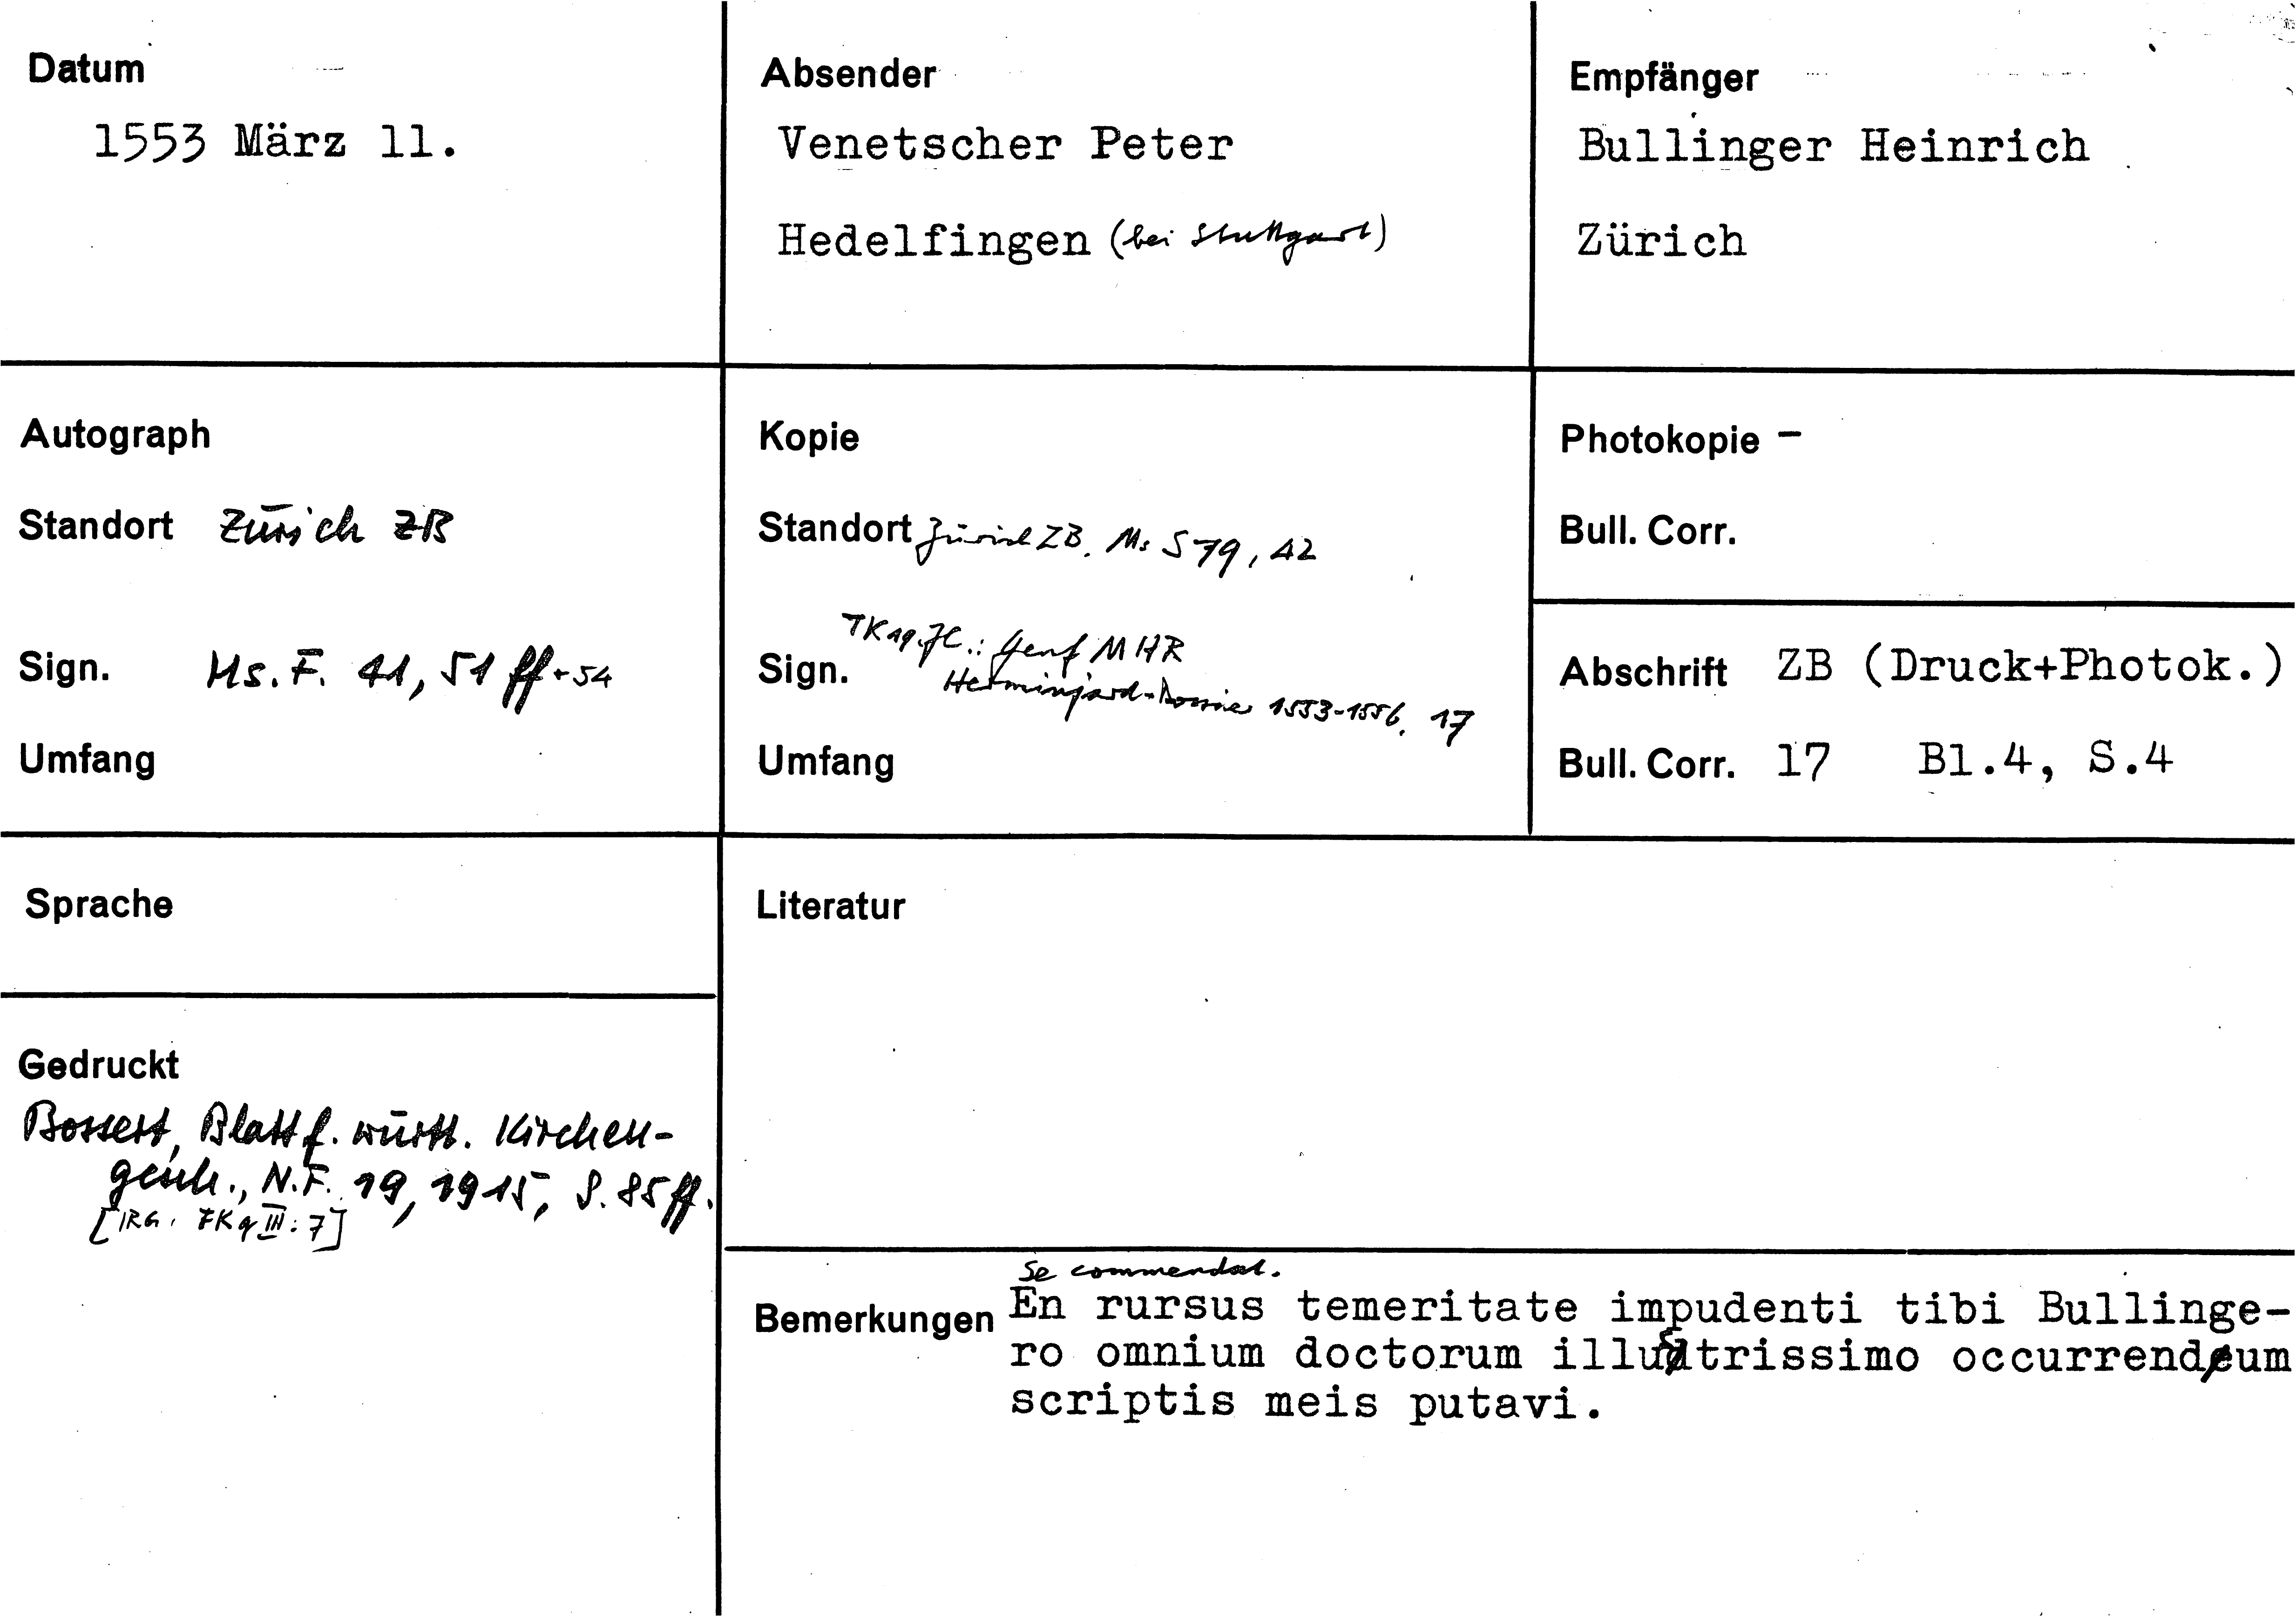 Datum
1553 März 11.
Absender
Venetscher Peter
Hedelfingen (bei Stuttgart)
Empfänger
Bullinger Heinrich
Zürich
Autograph
Standort Zürich ZB
Sign. Ms. F. 41, 51 ff + 54
Umfang
Kopie
Standort Zürich ZB. Ms S 79, 42
Genf MHR
Sign. Herminjard-Dossier 1553-1556, 17
Umfang
Photokopie –
Bull. Corr.
Abschrift ZB (Druck+Photok.)
Bull. Corr. 17 Bl.4, S.4
Sprache
Gedruckt
Bossert, Blatt f. württ. Kirchen-
gesch., N.F. 19, 1915, S. 85 ff.
[IRG. FKq III: 7]
Literatur
Se commendat.
Bemerkungen En rursus temeritate impudenti tibi Bullinge-
ro omnium doctorum illustrissimo occurrendum
scriptis meis putavi.